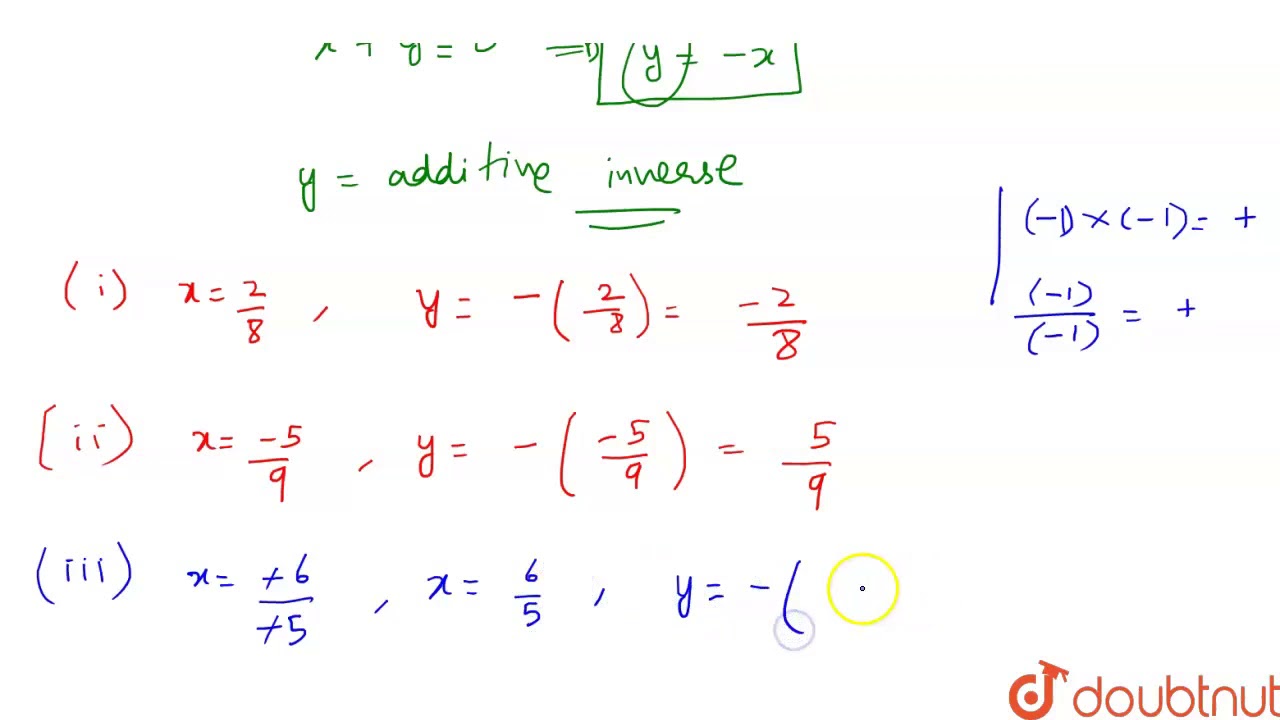 x + y = 0 ⇒ (y = -x
y = additive inverse
(-1) × (-1) = +
(i) x = 2/8 , y = -(2/8) = -2/8
(-1)/(-1) = +
(ii) x = -5/9 , y = -(-5/9) = 5/9
(iii) x = +6/+5 , x = 6/5 , y = -(
doubtnut